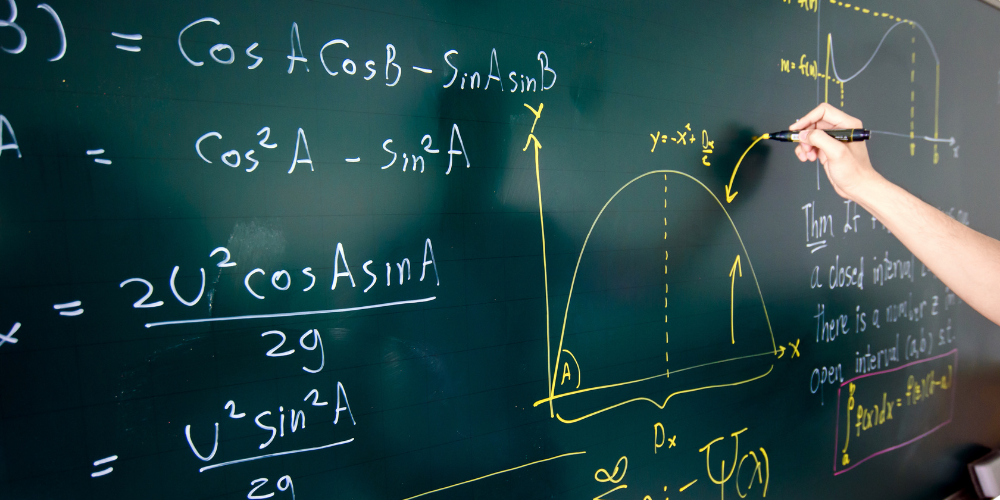 B) = Cos A CosB - SinA sinB
A = Cos² A - Sin² A
x = 2U² cos A sin A / 2g
= U² sin² A / 2g
Y
y = -x² +
A
X
Dx
∞
Ψ(λ)
m = f(n)
x
b
Thm If
a closed interval
there is a number z
open interval (a,b) s.t.
∫ₐᵇ f(x)dx = f(z)(b-a)